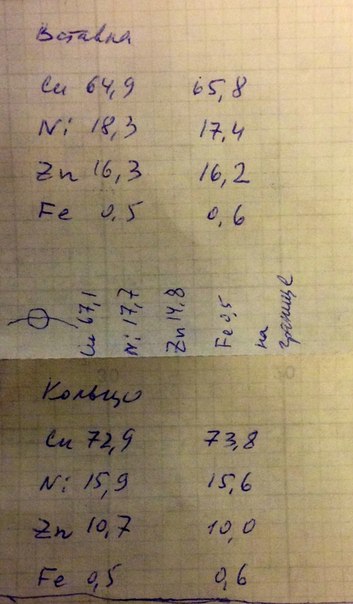 Вставка
Cu 64,9 65,8
Ni 18,3 17,4
Zn 16,3 16,2
Fe 0,5 0,6
Cu 67,1
Ni 17,7
Zn 14,8
Fe 0,5
на
границе
Кольцо
Cu 72,9 73,8
Ni 15,9 15,6
Zn 10,7 10,0
Fe 0,5 0,6